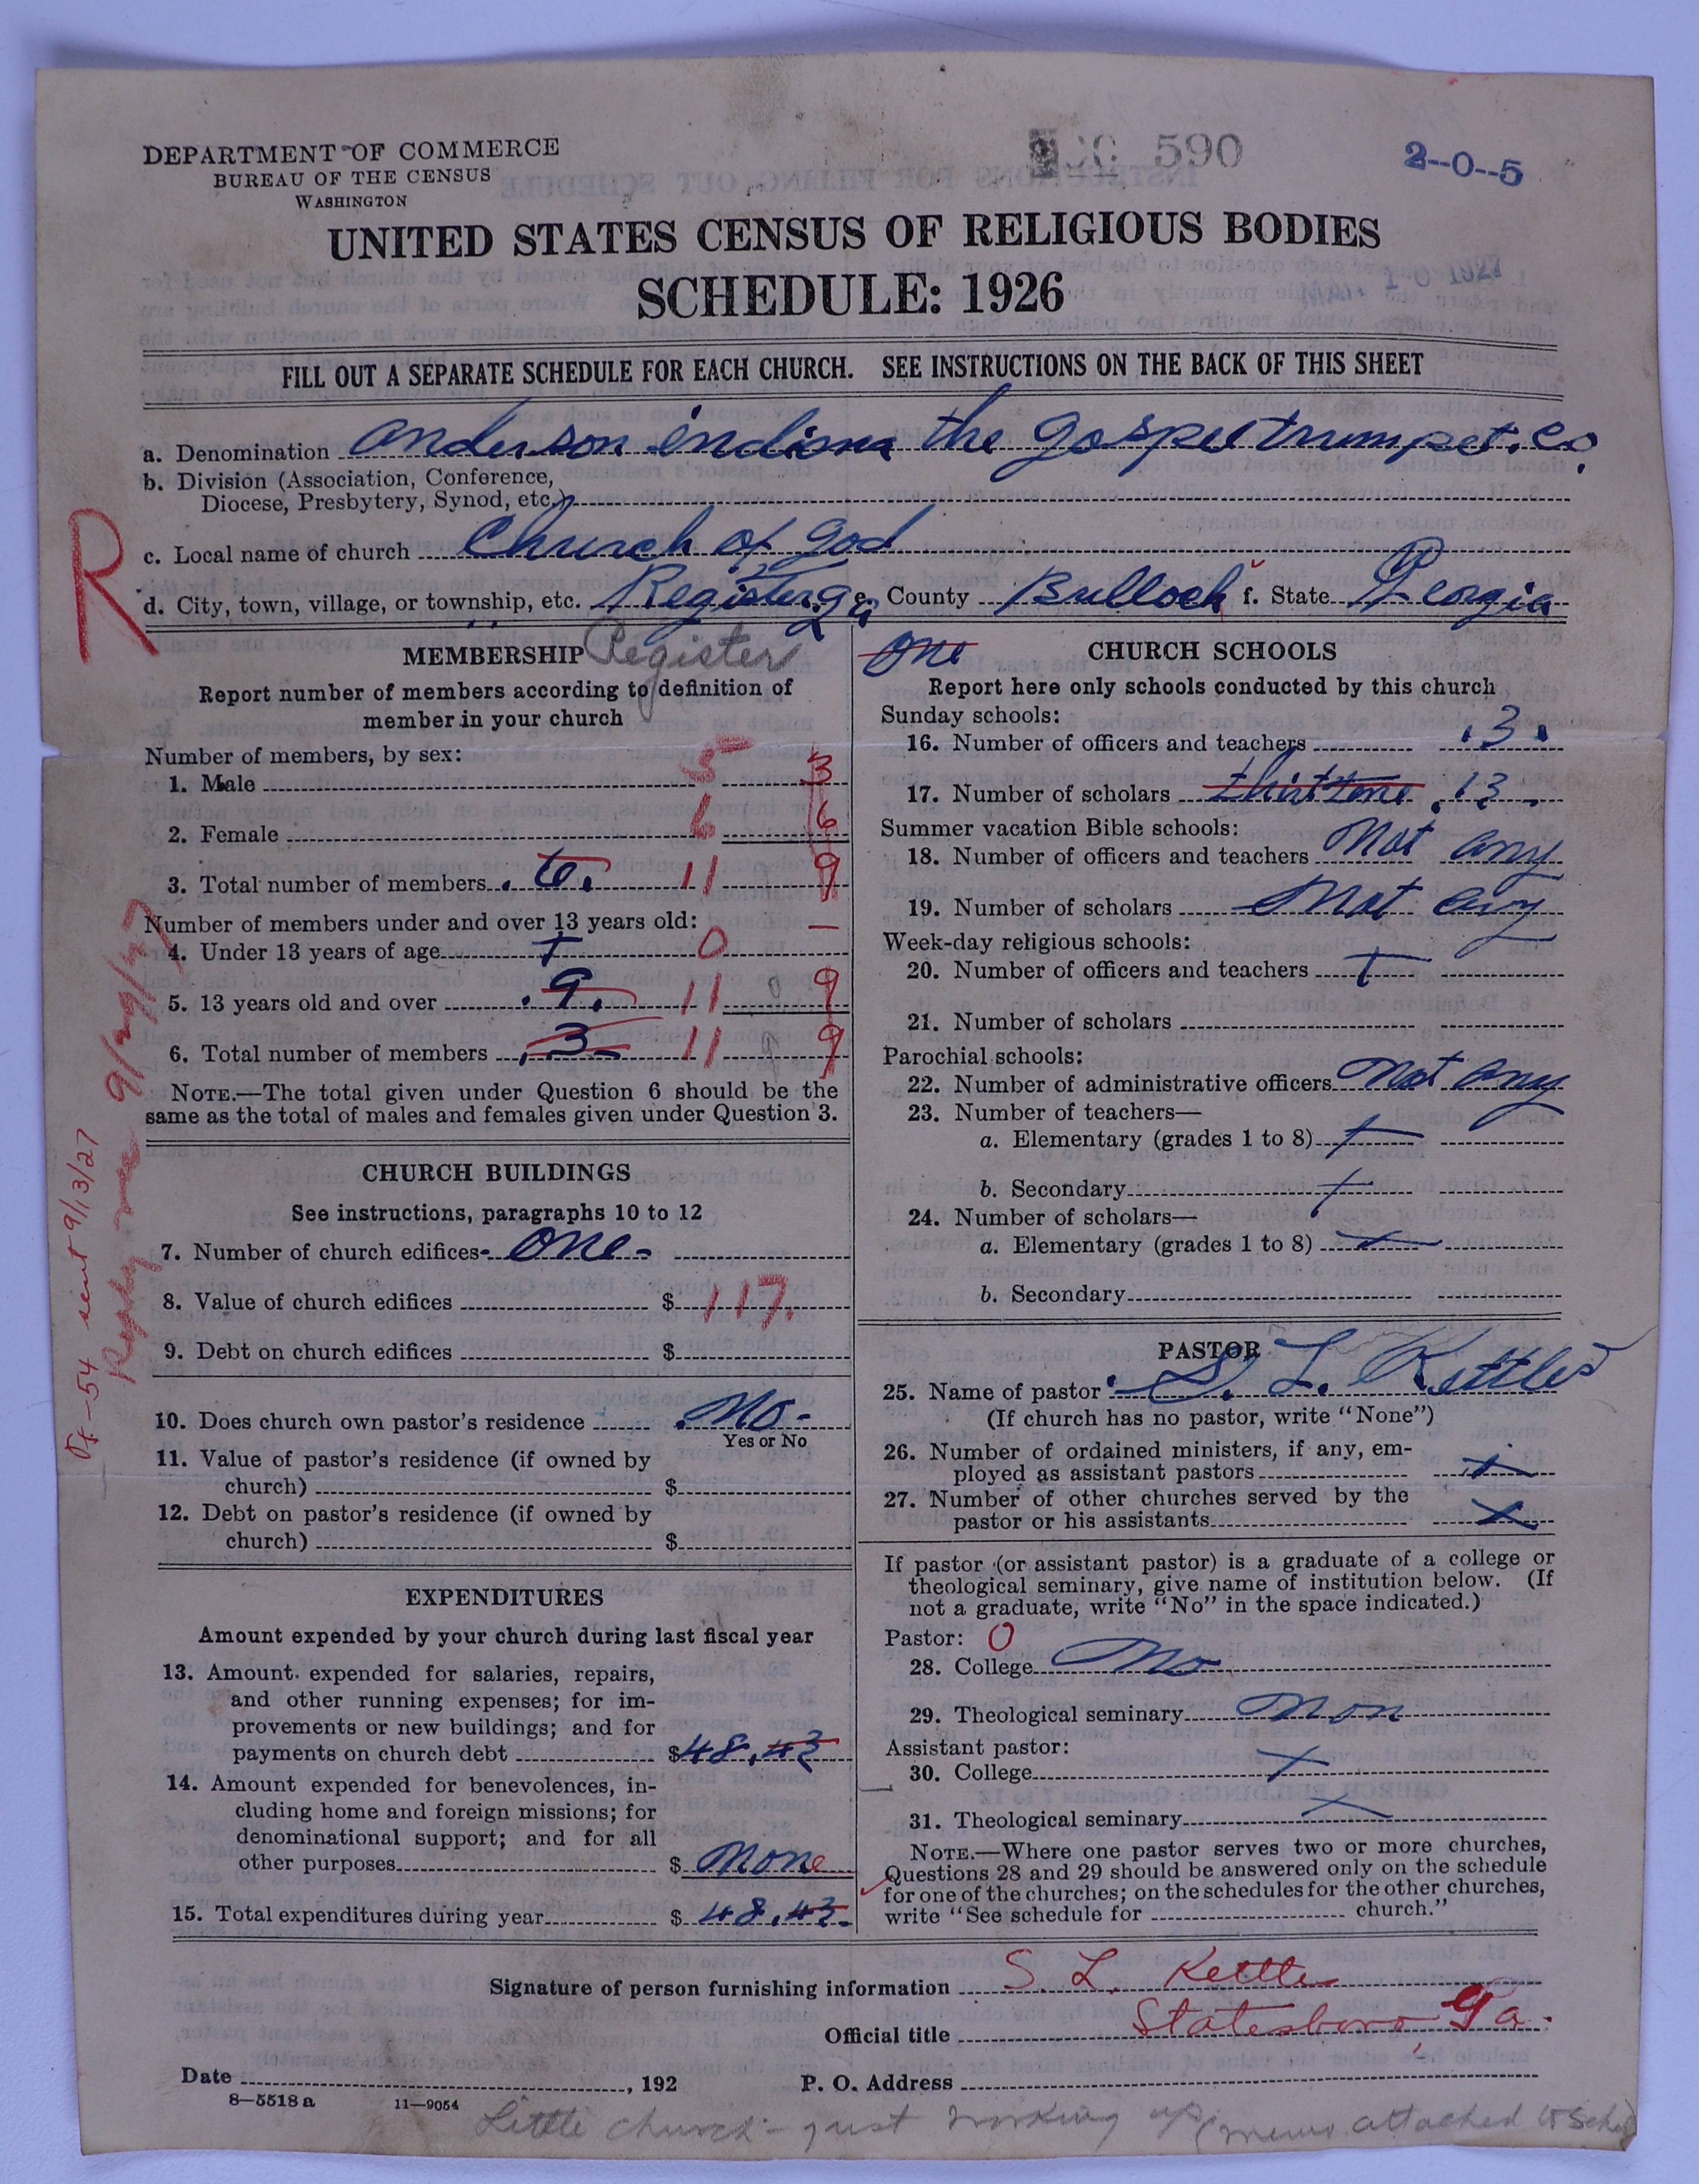 DEPARTMENT OF COMMERCE
BUREAU OF THE CENSUS
WASHINGTON
590
2--0--5
UNITED STATES CENSUS OF RELIGIOUS BODIES
SCHEDULE: 1926
10 1927
FILL OUT A SEPARATE SCHEDULE FOR EACH CHURCH. SEE INSTRUCTIONS ON THE BACK OF THIS SHEET
a. Denomination anderson indiana the gospel trumpet. co.
b. Division (Association, Conference,
Diocese, Presbytery, Synod, etc.)
c. Local name of church Church of god
R
d. City, town, village, or township, etc. Register ga e. County Bulloch f. State Georgia
MEMBERSHIP Register
Report number of members according to definition of
member in your church
Number of members, by sex:
1. Male 5 3
2. Female 6 6
3. Total number of members 11 9
Number of members under and over 13 years old:
4. Under 13 years of age + 0 –
5. 13 years old and over .9. 11 9
6. Total number of members 3 11 9
NOTE.—The total given under Question 6 should be the
same as the total of males and females given under Question 3.
CHURCH BUILDINGS
See instructions, paragraphs 10 to 12
7. Number of church edifices one
8. Value of church edifices $ 117.
9. Debt on church edifices $
10. Does church own pastor's residence No
Yes or No
11. Value of pastor's residence (if owned by
church) $
12. Debt on pastor's residence (if owned by
church) $
EXPENDITURES
Amount expended by your church during last fiscal year
13. Amount expended for salaries, repairs,
and other running expenses; for im-
provements or new buildings; and for
payments on church debt $48.43
14. Amount expended for benevolences, in-
cluding home and foreign missions; for
denominational support; and for all
other purposes $ None
15. Total expenditures during year $ 48.43
-54 sent 9/13/27
9/29/27
One CHURCH SCHOOLS
Report here only schools conducted by this church
Sunday schools:
16. Number of officers and teachers .3.
17. Number of scholars 13
Summer vacation Bible schools:
18. Number of officers and teachers Not any
19. Number of scholars Not any
Week-day religious schools:
20. Number of officers and teachers +
21. Number of scholars
Parochial schools:
22. Number of administrative officers Not any
23. Number of teachers—
a. Elementary (grades 1 to 8) +
b. Secondary +
24. Number of scholars—
a. Elementary (grades 1 to 8) +
b. Secondary
PASTOR
25. Name of pastor S. L. Kettles
(If church has no pastor, write "None")
26. Number of ordained ministers, if any, em-
ployed as assistant pastors +
27. Number of other churches served by the
pastor or his assistants x
If pastor (or assistant pastor) is a graduate of a college or
theological seminary, give name of institution below. (If
not a graduate, write "No" in the space indicated.)
Pastor: O
28. College No
29. Theological seminary Non
Assistant pastor:
30. College x
31. Theological seminary x
NOTE.—Where one pastor serves two or more churches,
Questions 28 and 29 should be answered only on the schedule
for one of the churches; on the schedules for the other churches,
write "See schedule for church."
Signature of person furnishing information S. L. Kettle
Official title Statesboro, Ga.
Date , 192 P. O. Address
8—5518 a 11—9054
Little church - just working up (memo attached to Sched